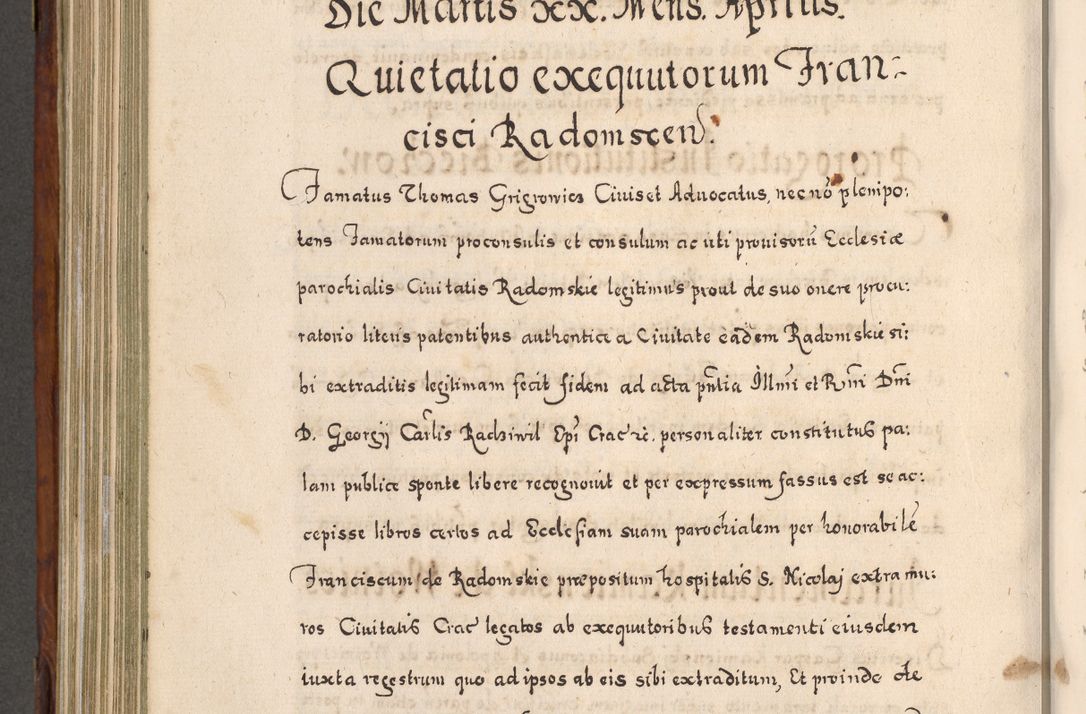 Die Martis XX. Mens. Aprilis.
Quietatio exequutorum Fran-
cisci Radomscen.
Famatus Thomas Grigrowicz Ciuis et Aduocatus, nec nõ plenipo:
tens Famatorum proconsulis et consulum ac uti prouisorũ Ecclesiæ
parochialis Ciuitatis Radomskie legitimus prout de suo onere procu:
ratorio literis patentibus authentice a Ciuitate eadem Radomskie si:
bi extraditis legitimam fecit fidem ad acta pñtia Illmi et Rmi Dñi
D. Georgij Carlis Radziwil Epi Crac rc. personaliter constitutus pa:
lam publice sponte libere recognouit et per expressum fassus est se ac:
cepisse libros certos ad Ecclesiam suam parochialem per honorabilē
Franciscum de Radomskie præpositum hospitalis S. Nicolaj extra mu:
ros Ciuitatis Crac legatos ab exequutoribus testamenti eiusdem
iuxta regestrum quo ad ipsos ab eis sibi extraditum, Et proinde de